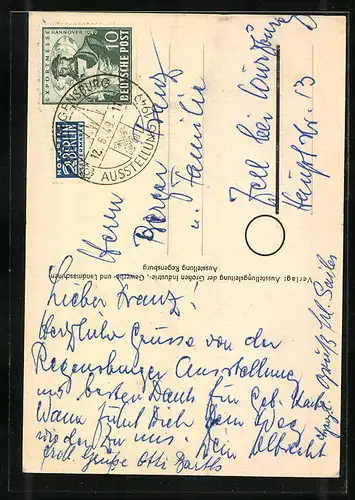 EXPORTMESSE HANNOVER 1949
10
DEUTSCHE POST
REGENSBURG
12.6.49
AUSSTELLUNG 1949
NOTOPFER
2 BERLIN
STEUERMARKE
Herrn
Berger Franz
u. Familie
Zell bei Würzburg
Hauptstr. 13
Verlag: Ausstellungsleitung der Großen Industrie-, Gewerbe- und Landmaschinen-
Ausstellung Regensburg
Lieber Franz,
Herzliche Grüsse von der
Regensburger Ausstellung
und besten Dank für Geb. Karte
Wann führt Dich Dein Weg
wieder zu uns. Dein Albrecht
Grüße Otti